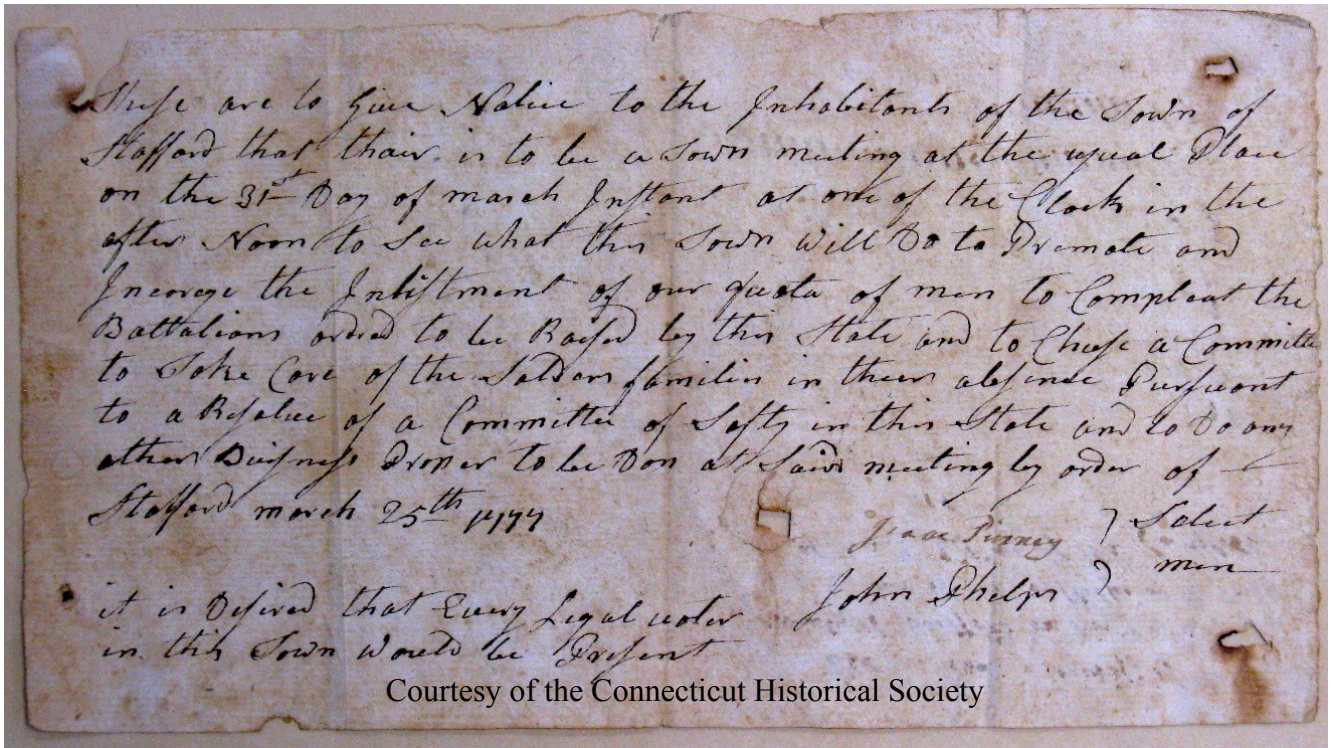 These are to Give Notice to the Inhabitants of the Town of
Stafford that thair is to be a Town meeting at the usual Place
on the 31st Day of march Instant at one of the Clock in the
after Noon to See what this Town Will Do to Promote and
Incorege the Inlistment of our quota of men to Compleat the
Battalions ordred to be Raised by this State and to Chuse a Committe
to Take Care of the Soldiers families in theer absence Pursuant
to a Resolve of a Committee of Safty in this State and to Do any
other Buisness Proper to be Don at Said meeting by order of
Stafford march 25th 1777
Isaac Pinney
Select
John Phelps
men
it is Desired that Every Legal voter
in this Town Would be Present
Courtesy of the Connecticut Historical Society